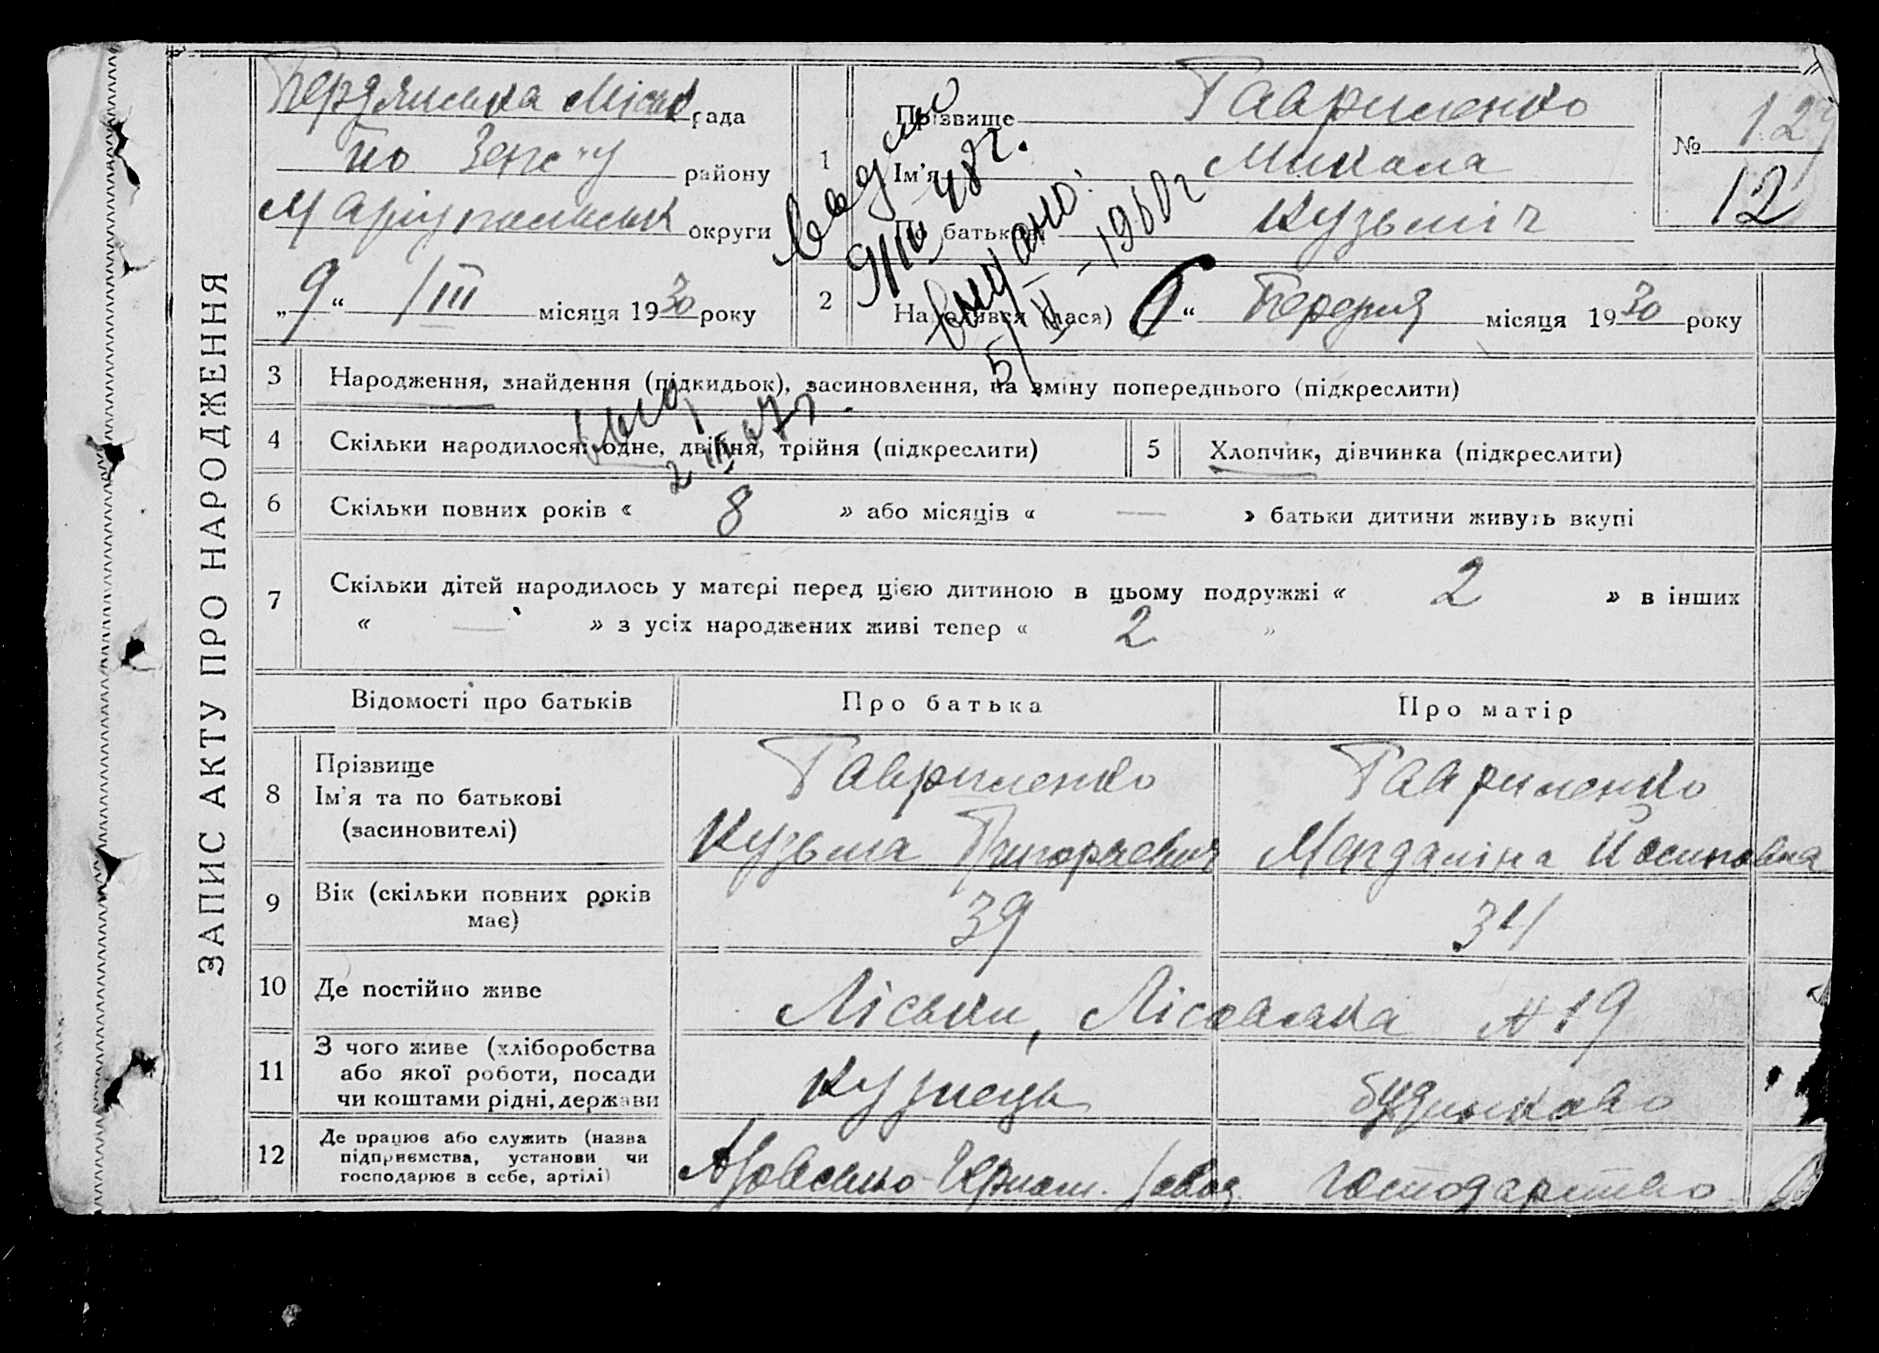 ЗАПИС АКТУ ПРО НАРОДЖЕННЯ
Бердянська Міськ рада
по району
Маріупільськ округи
„9“ /III місяця 1930 року
1 Прізвище Гавриленко
Ім'я Микола
По батькові Кузьміч
№ 127
12
2 Народився (лася) 6 “ Березня місяця 1930 року
видано
48г.
5/II-1960г
3 Народження, знайдення (підкидьок), засиновлення, на зміну попереднього (підкреслити)
4 Скільки народилося: одне, двійня, трійня (підкреслити)
5 Хлопчик, дівчинка (підкреслити)
6 Скільки повних років « 8 » або місяців « — » батьки дитини живуть вкупі
7 Скільки дітей народилось у матері перед цією дитиною в цьому подружжі « 2 » в інших
« — » з усіх народжених живі тепер « 2 »
Відомості про батьків Про батька Про матір
8 Прізвище
Ім'я та по батькові
(засиновителі)
Гавриленко
Кузьма Григорьевич
Гавриленко
Магдаліна Йосиповна
9 Вік (скільки повних років
має)
39 34
10 Де постійно живе Ліськи, Лісовська № 19
11 З чого живе (хліборобства
або якої роботи, посади
чи коштами рідні, держави
Кузнець
будинкове
12 Де працює або служить (назва
підприємства, установи чи
господарює в себе, артілі)
Азовсько-Чорном. завод
господарство